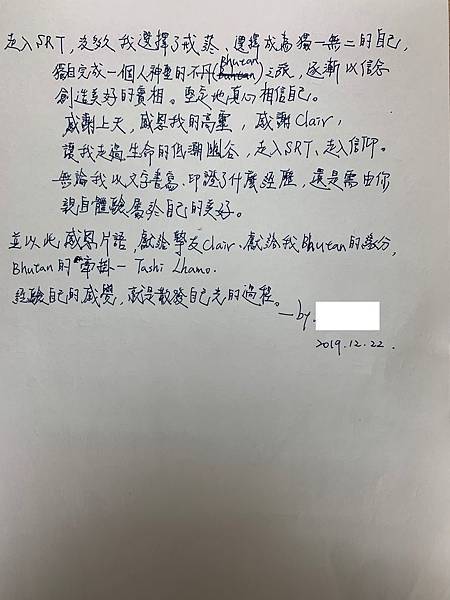 走入SRT,沒多久我選擇了戒菸,選擇成為獨一無二的自己,
獨自完成一個人神聖的不丹(Bhutan)之旅,逐漸以信念
創造美好的實相。堅定地真心相信自己。
感謝上天,感恩我的高靈,感謝Clair,
讓我走過生命的低潮幽谷,走入SRT、走入信仰。
無論我以文字書寫、印證了什麼經歷,還是需由你
親自體驗屬於自己的美好。
並以此感恩片語,獻給摯友Clair、獻給我Bhutan的緣分,
Bhutan的牽掛—Tashi Lhamo.
經驗自己的感覺,就是散發自己光的過程。
—by.
2019.12.22.